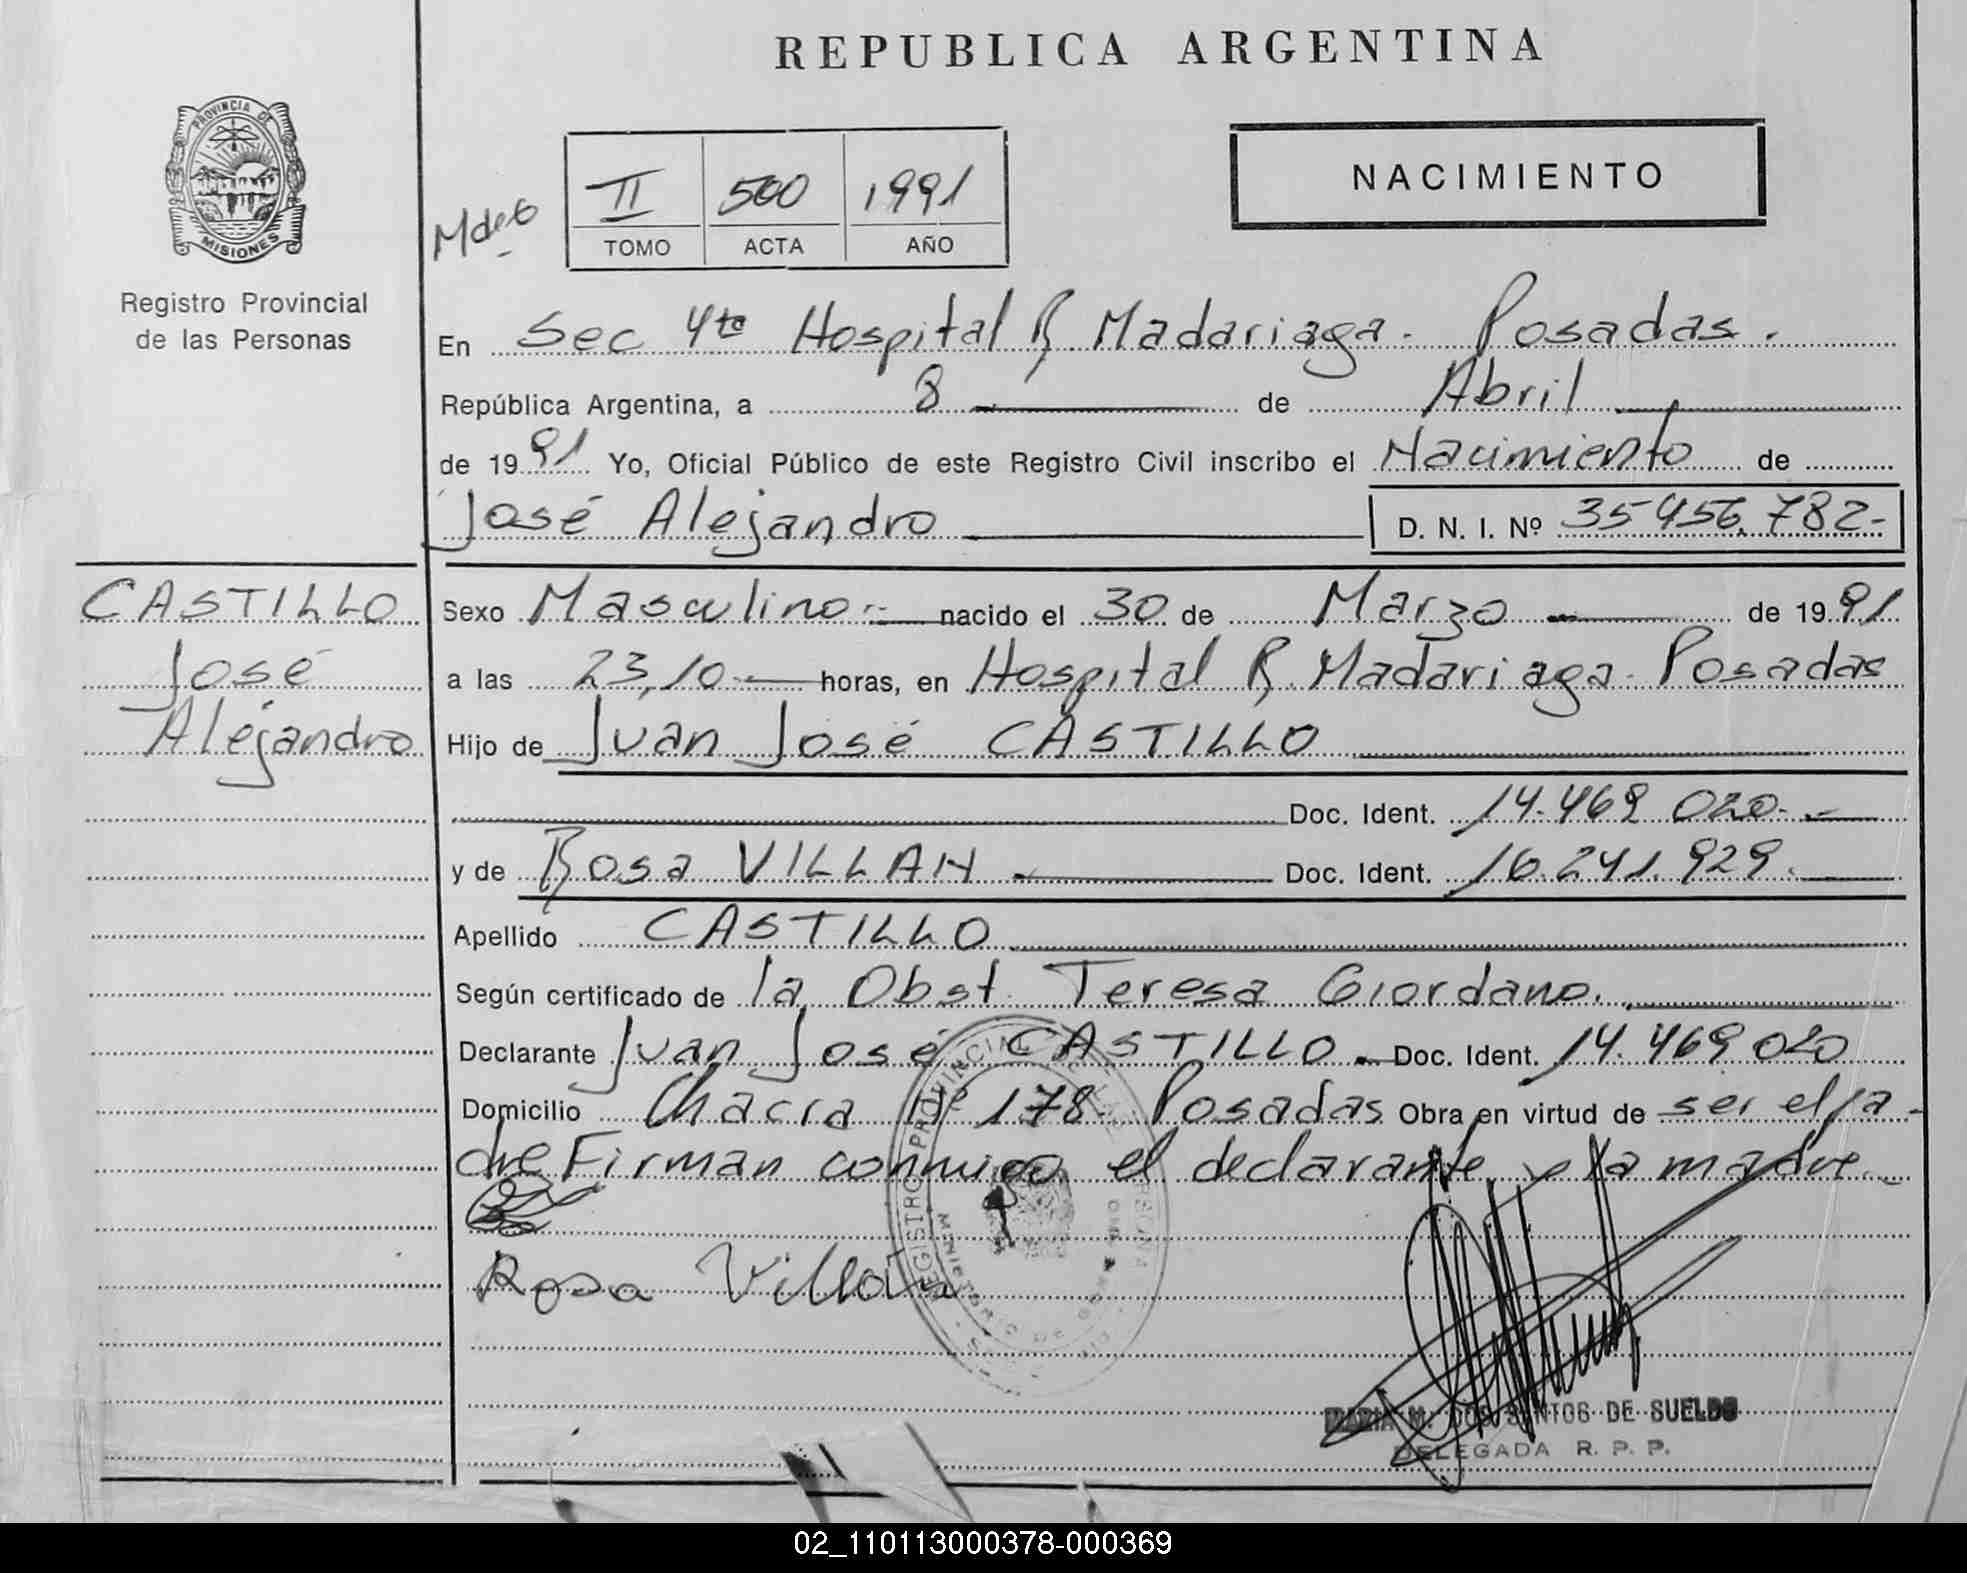 REPUBLICA ARGENTINA
PROVINCIA DE
MISIONES
Registro Provincial
de las Personas
II 500 1991
TOMO ACTA AÑO
NACIMIENTO
En Sec 4ta Hospital R. Madariaga. Posadas.
República Argentina, a 8 de Abril
de 1991 Yo, Oficial Público de este Registro Civil inscribo el Nacimiento de
José Alejandro D. N. I. Nº 35456.782-
CASTILLO
José
Alejandro
Sexo Masculino.- nacido el 30 de Marzo de 1991
a las 23,10 horas, en Hospital R. Madariaga. Posadas
Hijo de Juan José CASTILLO
Doc. Ident. 14.469 020.
y de Rosa VILLAN Doc. Ident. 16.241.929.
Apellido CASTILLO
Según certificado de la Obst. Teresa Giordano.
Declarante Juan José CASTILLO. Doc. Ident. 14.469 020
Domicilio Chacra Nº 178. Posadas Obra en virtud de ser el pa-
dre Firman conmigo el declarante y la madre.
Rosa Villan
REGISTRO PROVINCIAL DE LAS PERSONAS
MINISTERIO DE GOBIERNO
MARIA M. DOS SANTOS DE SUELDO
DELEGADA R. P. P.
02_110113000378-000369